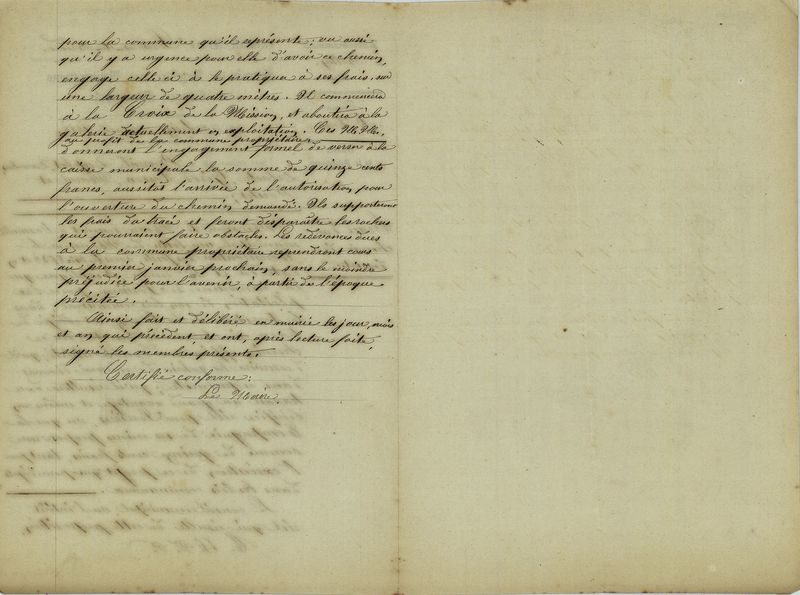 pour la commune qu'il représente; vu aussi
qu'il y a urgence pour elle d'avoir ce chemin,
engage celle ci à le pratiquer à ses frais, sur
une largeur de quatre mètres. Il commencera
à la Croix de la Mission, et aboutira à la
galerie actuellement en exploitation. Ces MM.
au profit de la commune propriétaire
donneront l'engagement formel de verser à la
caisse municipale la somme de quinze cents
francs, aussitôt l'arrivée de l'autorisation pour
l'ouverture du chemin demandé. Ils supporteront
les frais du tracé et feront disparaître les rochers
qui pourraient faire obstacles. Les redevances dues
à la commune propriétaire reprendront cours
au premier janvier prochain, sans le moindre
préjudice pour l'avenir, à partir de l'époque
précitée.
Ainsi fait et délibéré en mairie les jour, mois
et an qui précèdent, et ont, après lecture faite,
signé les membres présents.
Certifié conforme:
Le Maire,